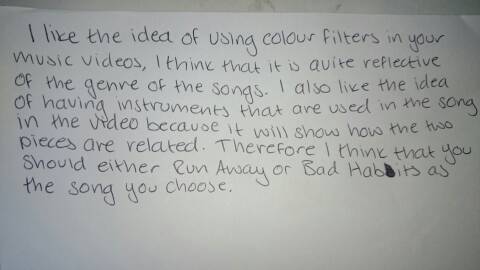 I like the idea of using colour filters in your
music videos, I think that it is quite reflective
of the genre of the songs. I also like the idea
of having instruments that are used in the song
in the video because it will show how the two
pieces are related. Therefore I think that you
should either Run Away or Bad Habits as
the song you choose.